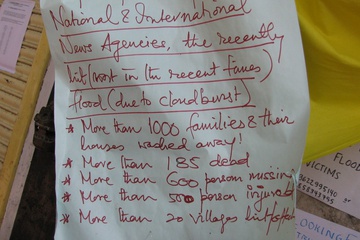 National & International
News Agencies, the recently
hit (worst in the recent times)
flood (due to cloudburst)
* More than 1000 families & their
houses washed away!
* More than 185 dead
* More than 600 person missing
* More than 500 person injured
* More than 20 Villages hit
FLOOD
VICTIMS
LOOKING